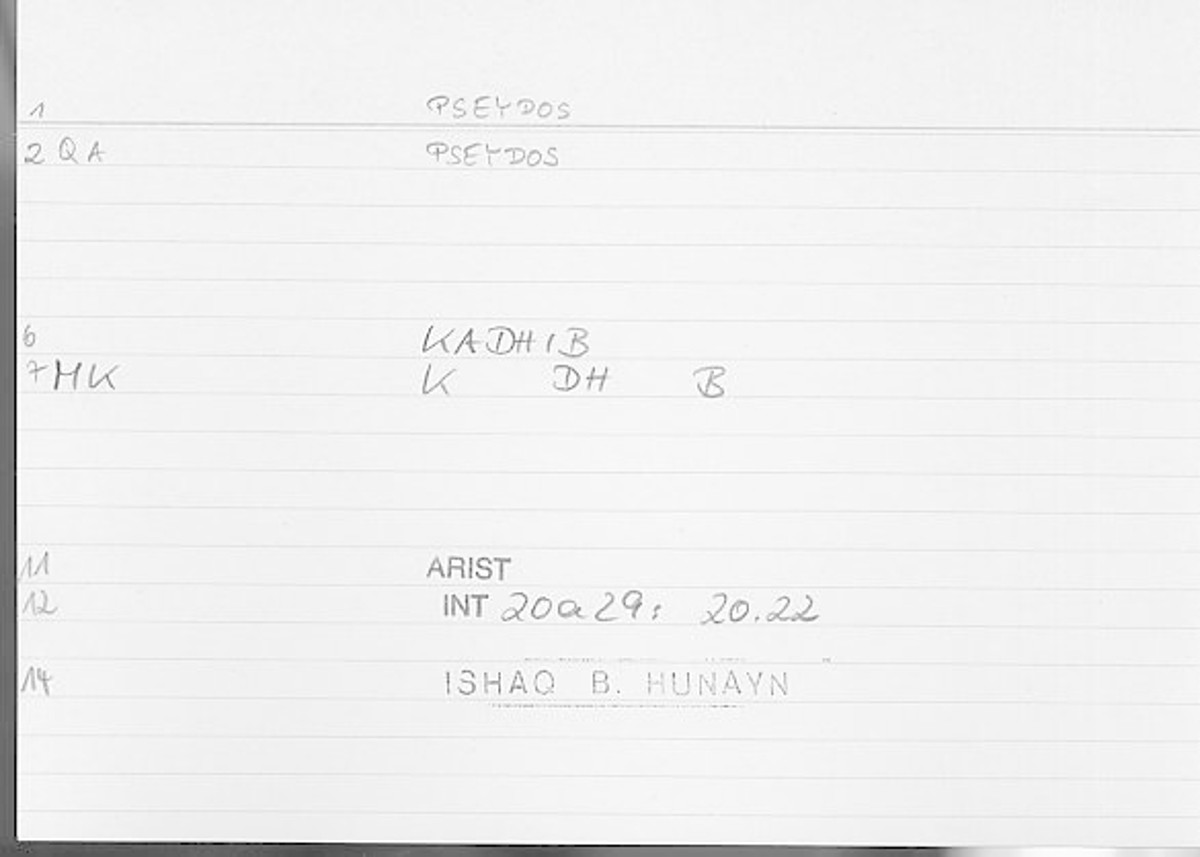 1 PSEYDOS
2 QA PSEYDOS
6 KADHIB
7 MK K DH B
11 ARIST
12 INT 20a29: 20.22
14 ISHAQ B. HUNAYN